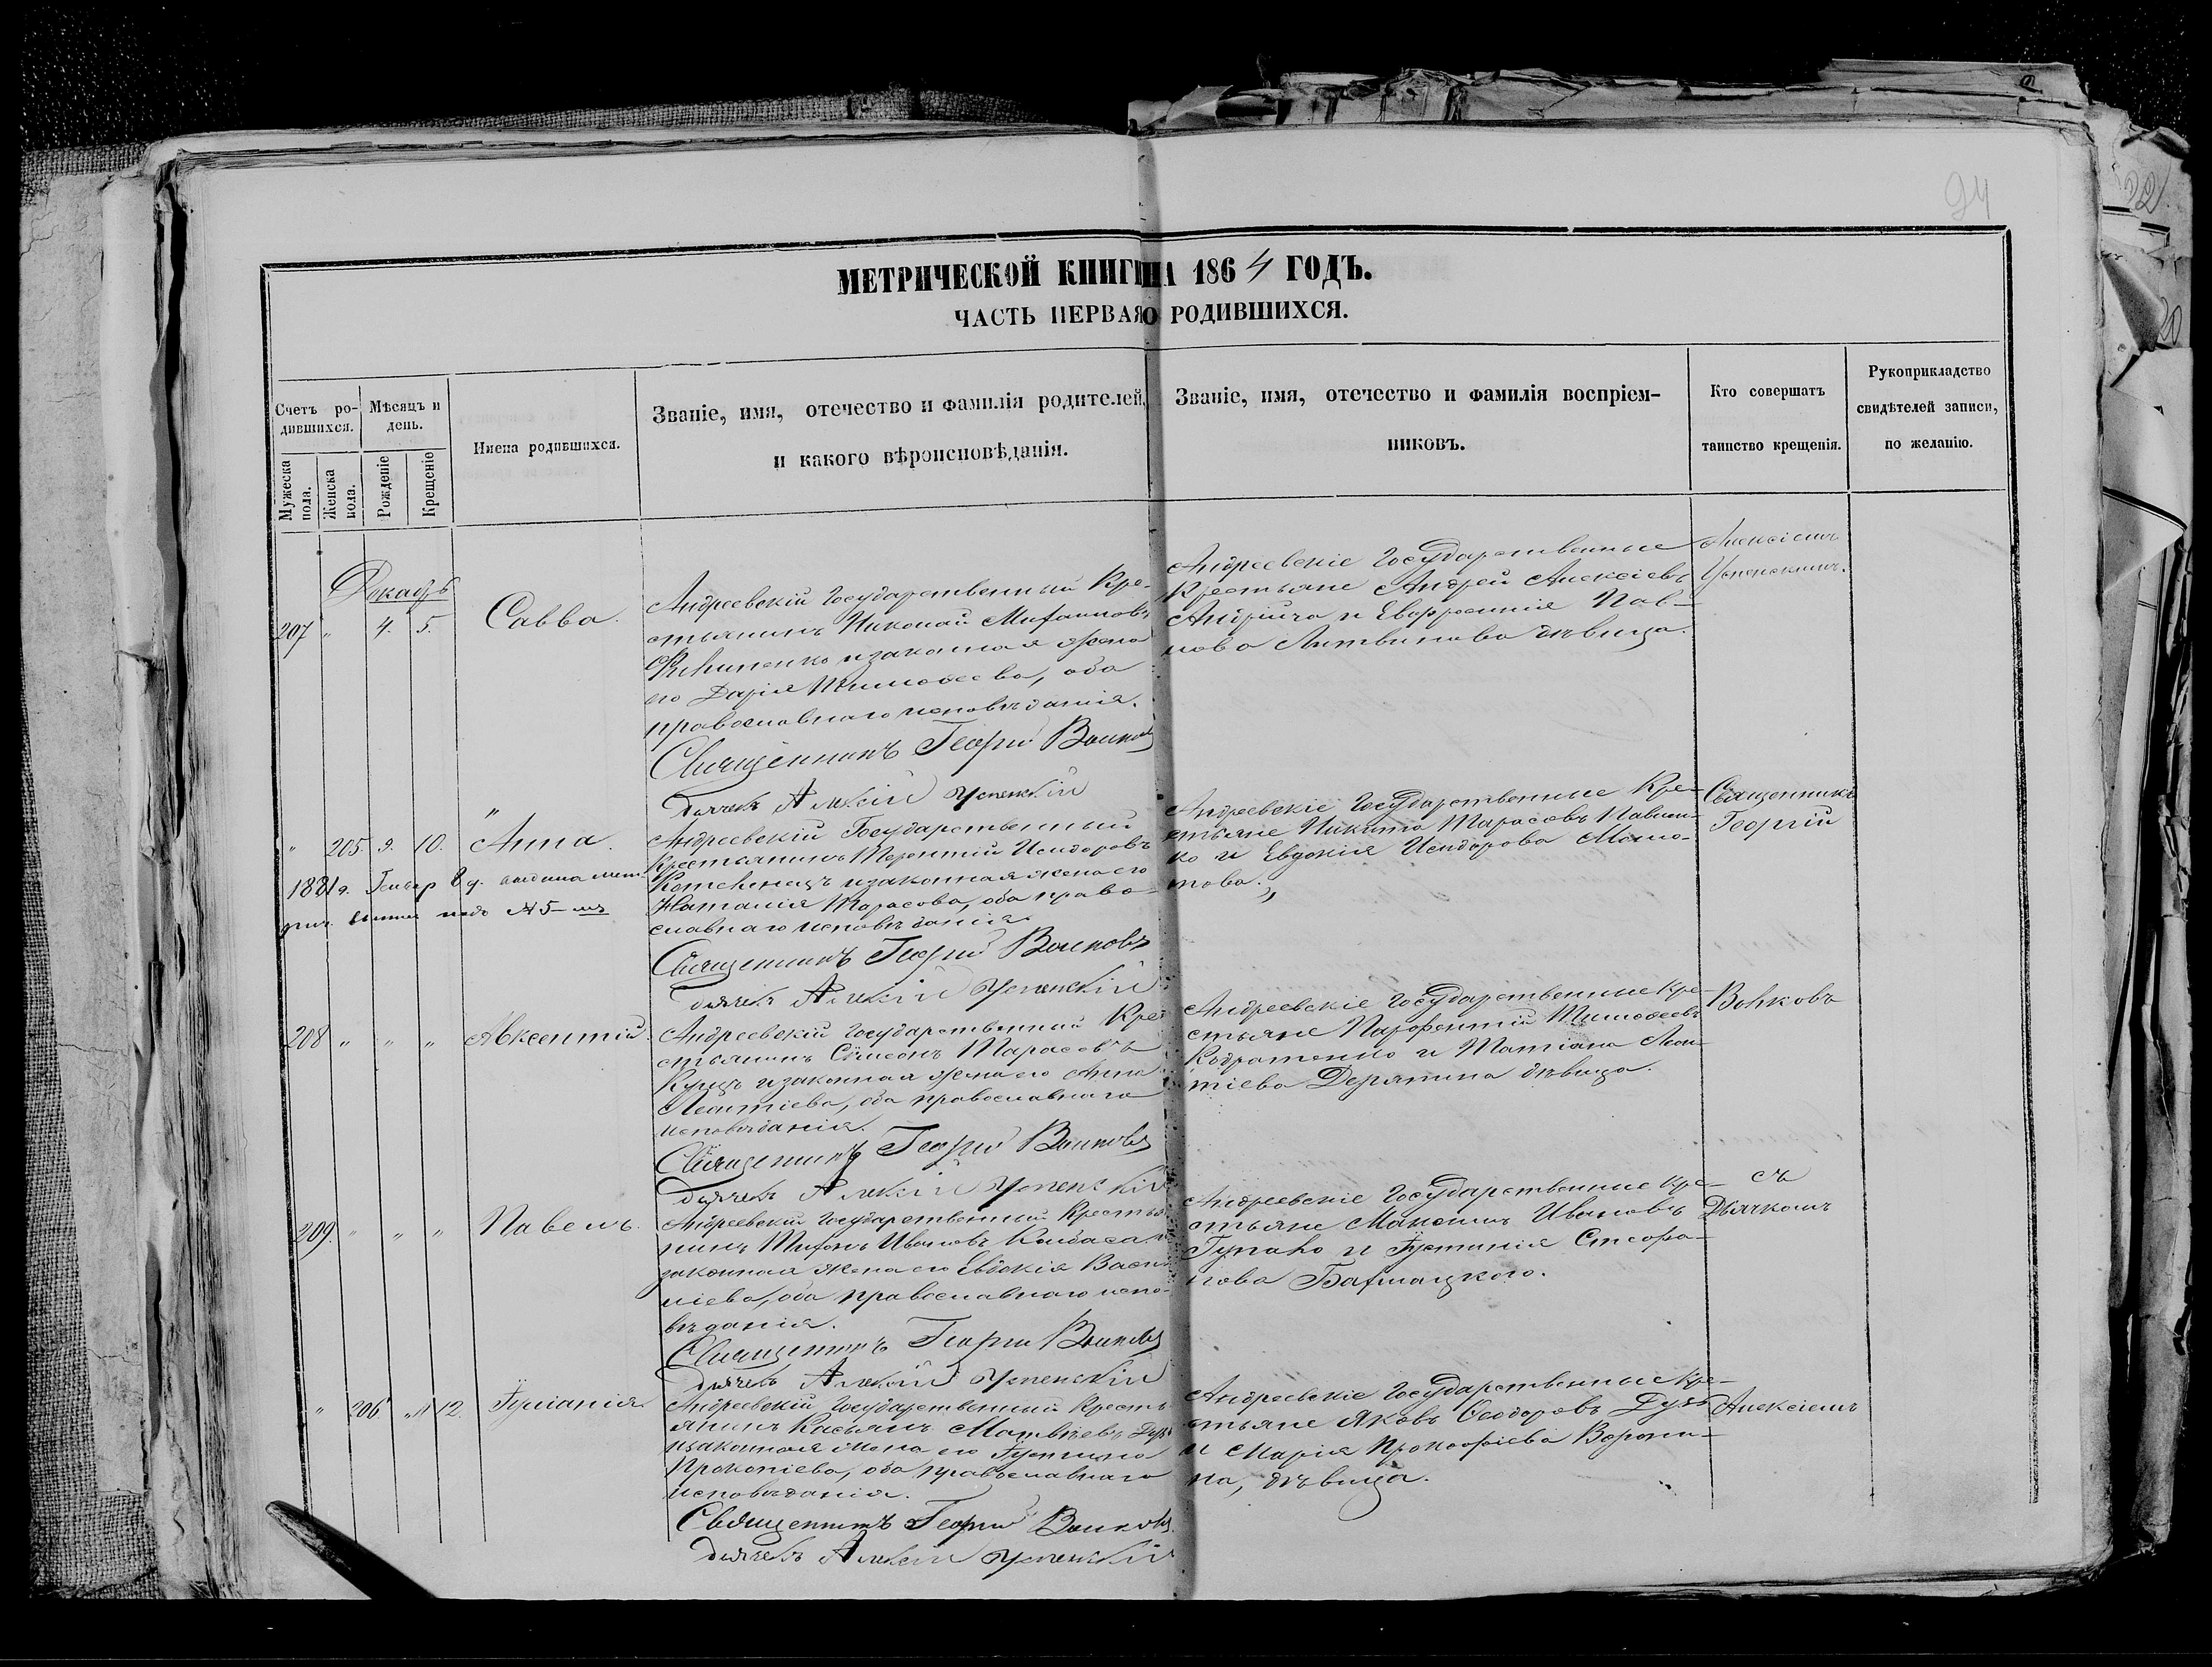 94
22
20
МЕТРИЧЕСКОЙ КНИГИ НА 1864 ГОДЪ.
ЧАСТЬ ПЕРВАЯ О РОДИВШИХСЯ.
Счетъ ро-
дившихся.
Мужеска
пола.
Женска
пола.
Мѣсяцъ и
день.
Рожденіе
Крещеніе
Имена родившихся.
Званіе, имя, отечество и фамилія родителей,
и какого вѣроисповѣданія.
Званіе, имя, отечество и фамилія воспріем-
никовъ.
Кто совершатъ
таинство крещенія.
Рукоприкладство
свидѣтелей записи,
по желанію.
Декабрь
207 " 4. 5.
Савва.
Андреевскій Государственный Кре-
стьянинъ Николай
и законная жена
его Дарія Тимоѳеева, оба
православнаго исповѣданія.
Священникъ Георгій Волковъ
дьячекъ Алексій Успенскій
Андреевскіе Государственные
Крестьяне Андрей Алексіевъ
и Евфросинія Пав-
лова Литвинова дѣвица.
Алексіемъ
Успенскимъ.
" 205. 9. 10.
Анна.
1881 г. Генвар 8 д. выдана мет
рич. подъ № 5-мъ
Андреевскій Государственный
Крестьянинъ Терентій Исидоровъ
и законная жена его
Наталія Тарасова, оба право-
славнаго исповѣданія.
Священникъ Георгій Волковъ
дьячекъ Алексій Успенскій
Андреевскіе Государственные Кре-
стьяне Никита Тарасовъ Павлен-
ко и Евдокія Исидорова
Священникъ
Георгій
208 " " "
Авксентій.
Андреевскій Государственный Кре
стьянинъ Сѵмеонъ Тарасовъ
и законная жена его Анна
Леонтіева, оба православнаго
исповѣданія.
Священникъ Георгій Волковъ
дьячекъ Алексій Успенскій
Андреевскіе Государственные Кре-
стьяне Парфентій Тимоѳеевъ
Кодратенко и Татіана Леон-
тіева дѣвица.
Волковъ
209. " " "
Павелъ.
Андреевскій Государственный Крестья
нинъ Тихонъ Ивановъ Колбаса и
законная жена его Евдокія Васи
ліева, оба православнаго испо-
вѣданія.
Священникъ Георгій Волковъ
дьячекъ Алексій Успенскій
Андреевскіе Государственные Кре-
стьяне Максимъ Ивановъ
и Іустинія Стефа-
нова
съ
Дьячкомъ
" 206 " 11 12
Іуліанія.
Андреевскій Государственный Кресть
янинъ Касьянъ Матвѣевъ
и законная жена его Іустина
Прокопіева, оба православнаго
исповѣданія.
Священникъ Георгій Волковъ
дьячекъ Алексій Успенскій
Андреевскіе Государственные Кре-
стьяне Яковъ Ѳеодоровъ
и Марія Прокофіева Ворони-
на, дѣвица.
Алексіемъ